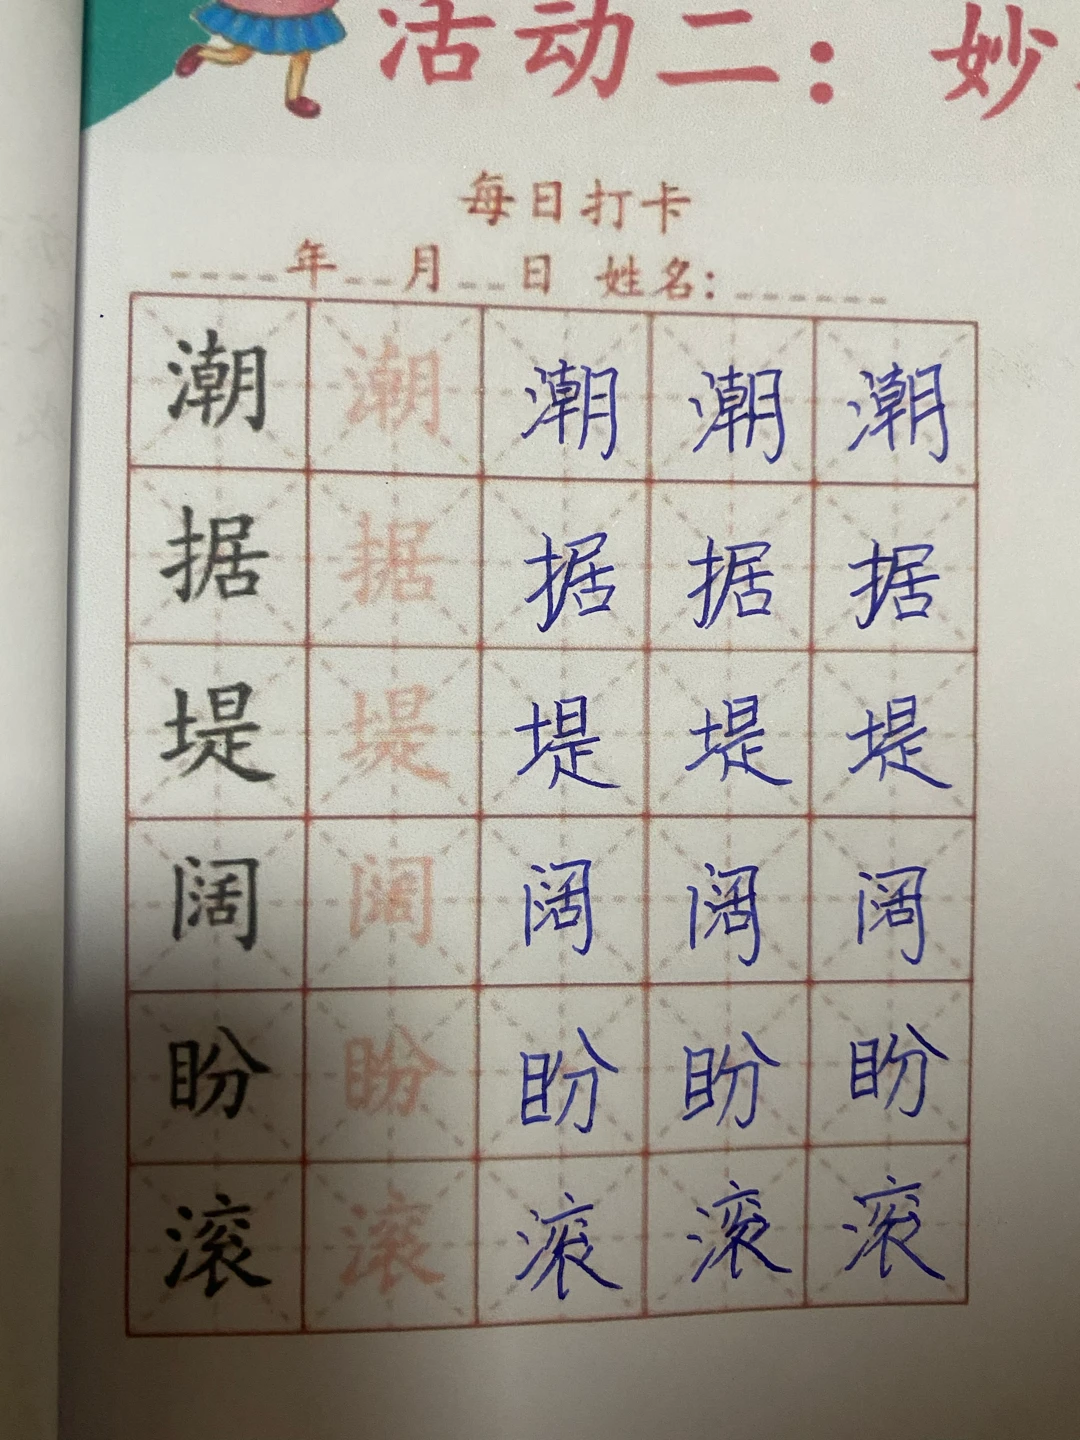 活动二：妙
每日打卡
年 月 日 姓名：
潮 潮 潮 潮 潮
据 据 据 据 据
堤 堤 堤 堤 堤
阔 阔 阔 阔 阔
盼 盼 盼 盼 盼
滚 滚 滚 滚 滚